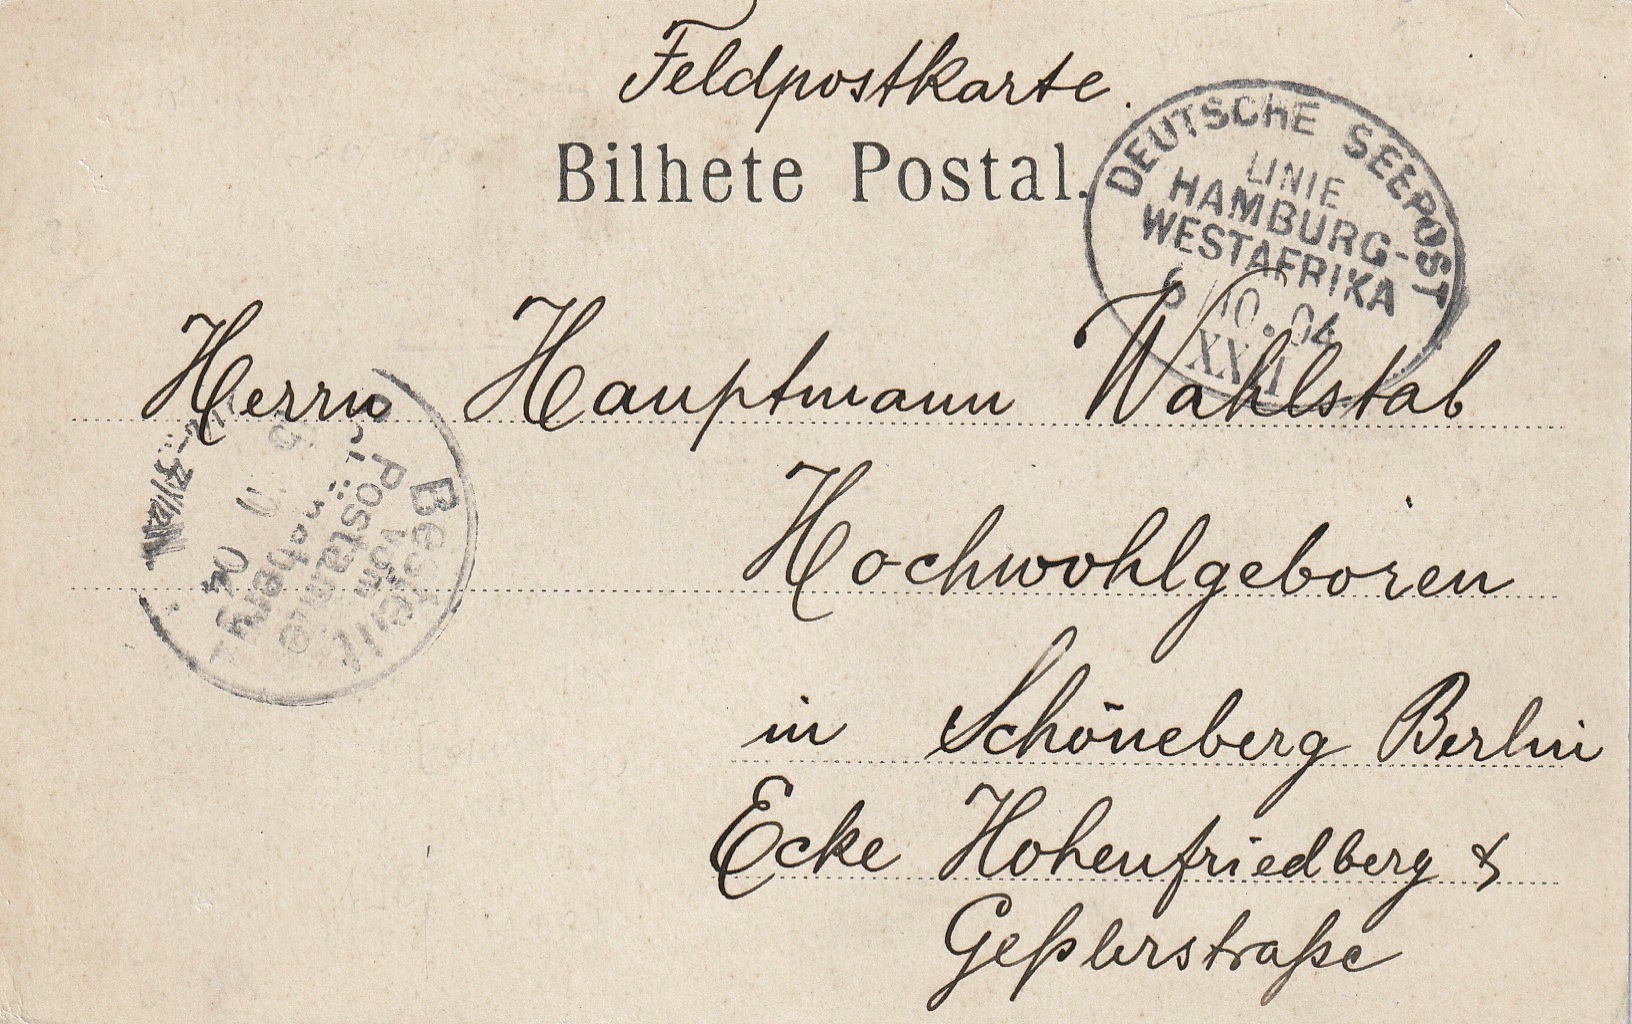 Feldpostkarte.
Bilhete Postal.
DEUTSCHE SEEPOST
LINIE
HAMBURG-
WESTAFRIKA
10.04
Herrn Hauptmann Wahlstab
Hochwohlgeboren
in Schöneberg Berlin
Ecke Hohenfriedberg &
Geßlerstraße
Bestellt
vom
Postamte
11 04